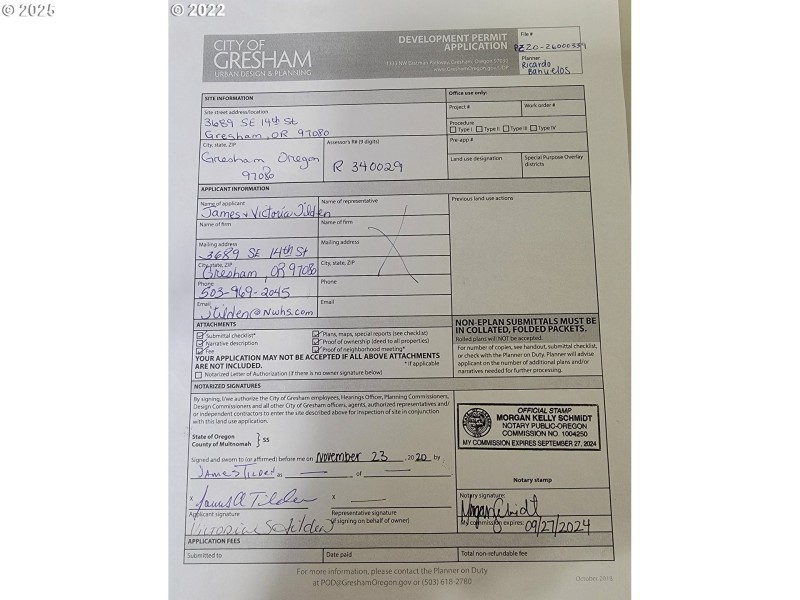 © 2025
© 2022
CITY OF
GRESHAM
URBAN DESIGN & PLANNING
DEVELOPMENT PERMIT
APPLICATION
1333 NW Eastman Parkway, Gresham, Oregon 97030
File #
Planner
Ricardo
Banuelos
SITE INFORMATION
Office use only:
Site street address/location
3689 SE 14th St
Gresham, OR 97080
Project #
Work order #
Procedure
Type I Type II Type III Type IV
City, state, ZIP
Gresham Oregon
97080
Assessor's R# (9 digits)
R 340029
Pre-app #
Land use designation
Special Purpose Overlay
districts
APPLICANT INFORMATION
Name of applicant
James + Victoria Tilden
Name of representative
Previous land use actions
Name of firm
Name of firm
Mailing address
3689 SE 14th St
Mailing address
City, state, ZIP
Gresham, OR 97080
City, state, ZIP
Phone
503-969-2045
Phone
Email
jtilden@nwhs.com
Email
ATTACHMENTS
Submittal checklist*
Narrative description
Fee
Plans, maps, special reports (see checklist)
Proof of ownership (deed to all properties)
Proof of neighborhood meeting*
YOUR APPLICATION MAY NOT BE ACCEPTED IF ALL ABOVE ATTACHMENTS
ARE NOT INCLUDED.
* If applicable
Notarized Letter of Authorization (if there is no owner signature below)
NON-EPLAN SUBMITTALS MUST BE
IN COLLATED, FOLDED PACKETS.
Rolled plans will NOT be accepted.
For number of copies, see handout, submittal checklist,
or check with the Planner on Duty. Planner will advise
applicant on the number of additional plans and/or
narratives needed for further processing.
NOTARIZED SIGNATURES
By signing, I/we authorize the City of Gresham employees, Hearings Officer, Planning Commissioners,
Design Commissioners and all other City of Gresham officers, agents, authorized representatives and/
or independent contractors to enter the site described above for inspection of site in conjunction
with this land use application.
State of Oregon
County of Multnomah } SS
Signed and sworn to (or affirmed) before me on November 23, 2020 by
James Tilden as — of —
OFFICIAL STAMP
MORGAN KELLY SCHMIDT
NOTARY PUBLIC-OREGON
COMMISSION NO. 1004250
MY COMMISSION EXPIRES SEPTEMBER 27, 2024
Notary stamp
X James A Tilden
X —
Applicant signature
Representative signature
(if signing on behalf of owner)
Notary signature:
My commission expires: 09/27/2024
APPLICATION FEES
Submitted to
Date paid
Total non-refundable fee
For more information, please contact the Planner on Duty
at POD@GreshamOregon.gov or (503) 618-2780
October 2018